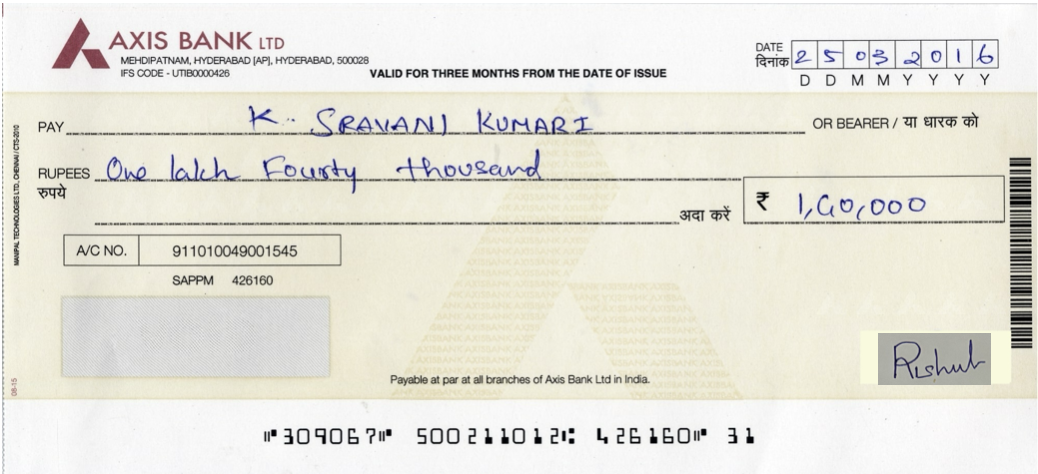 AXIS BANK LTD
MEHDIPATNAM, HYDERABAD [AP], HYDERABAD, 500028
IFS CODE - UTIB0000426
VALID FOR THREE MONTHS FROM THE DATE OF ISSUE
DATE
दिनांक 2 5 0 3 2 0 1 6
D D M M Y Y Y Y
PAY K. SRAVANI KUMARI OR BEARER / या धारक को
RUPEES One lakh Fourty thousand
रुपये
अदा करें ₹ 1,40,000
A/C NO. 911010049001545
SAPPM 426160
MANIPAL TECHNOLOGIES LTD, CHENNAI / CTS-2010
08-15
Rishub
Payable at par at all branches of Axis Bank Ltd in India.
⑈309067⑈ 500211012⑆ 426160⑈ 31